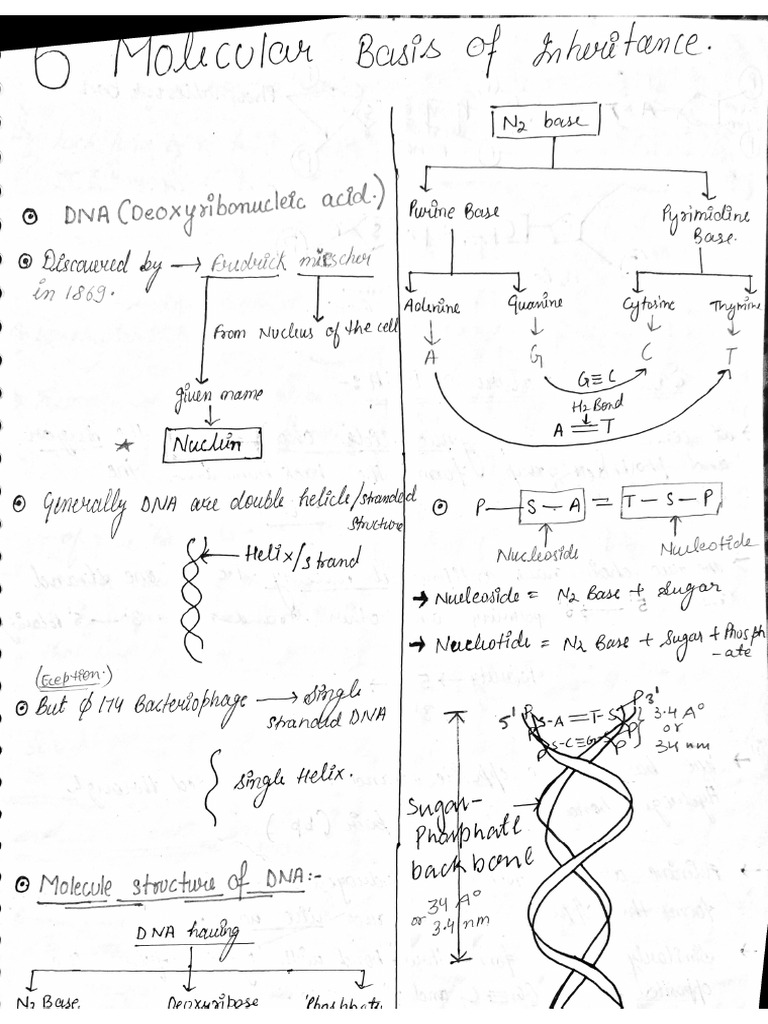 6 Molecular Basis of Inheritance.
DNA (Deoxyribonucleic acid.)
Discovered by → Fredrick mischer
in 1869.
from Nucleus of the cell
given name
Nuclin
Generally DNA are double helicle/stranded
structure
Helix/strand
(Eception.)
But φ 174 Bacteriophage → single
stranded DNA
single Helix.
Molecule structure of DNA:-
DNA having
N2 Base. Deoxyribose Phosphate
N2 base
Purine Base Pyrimidine
Base.
Adenine Guanine Cytosine Thymine
A G C T
G≡C
H2 Bond
A = T
P — S — A = T — S — P
Nucleoside Nucleotide
→ Nucleoside = N2 Base + Sugar
→ Nucleotide = N2 Base + Sugar + Phosph
-ate
5' P S-A=T-S P 3' 3.4 A°
or
P S-C≡G-S P 34 nm
Sugar-
Phosphate
backbone
34 A°
or 3.4 nm